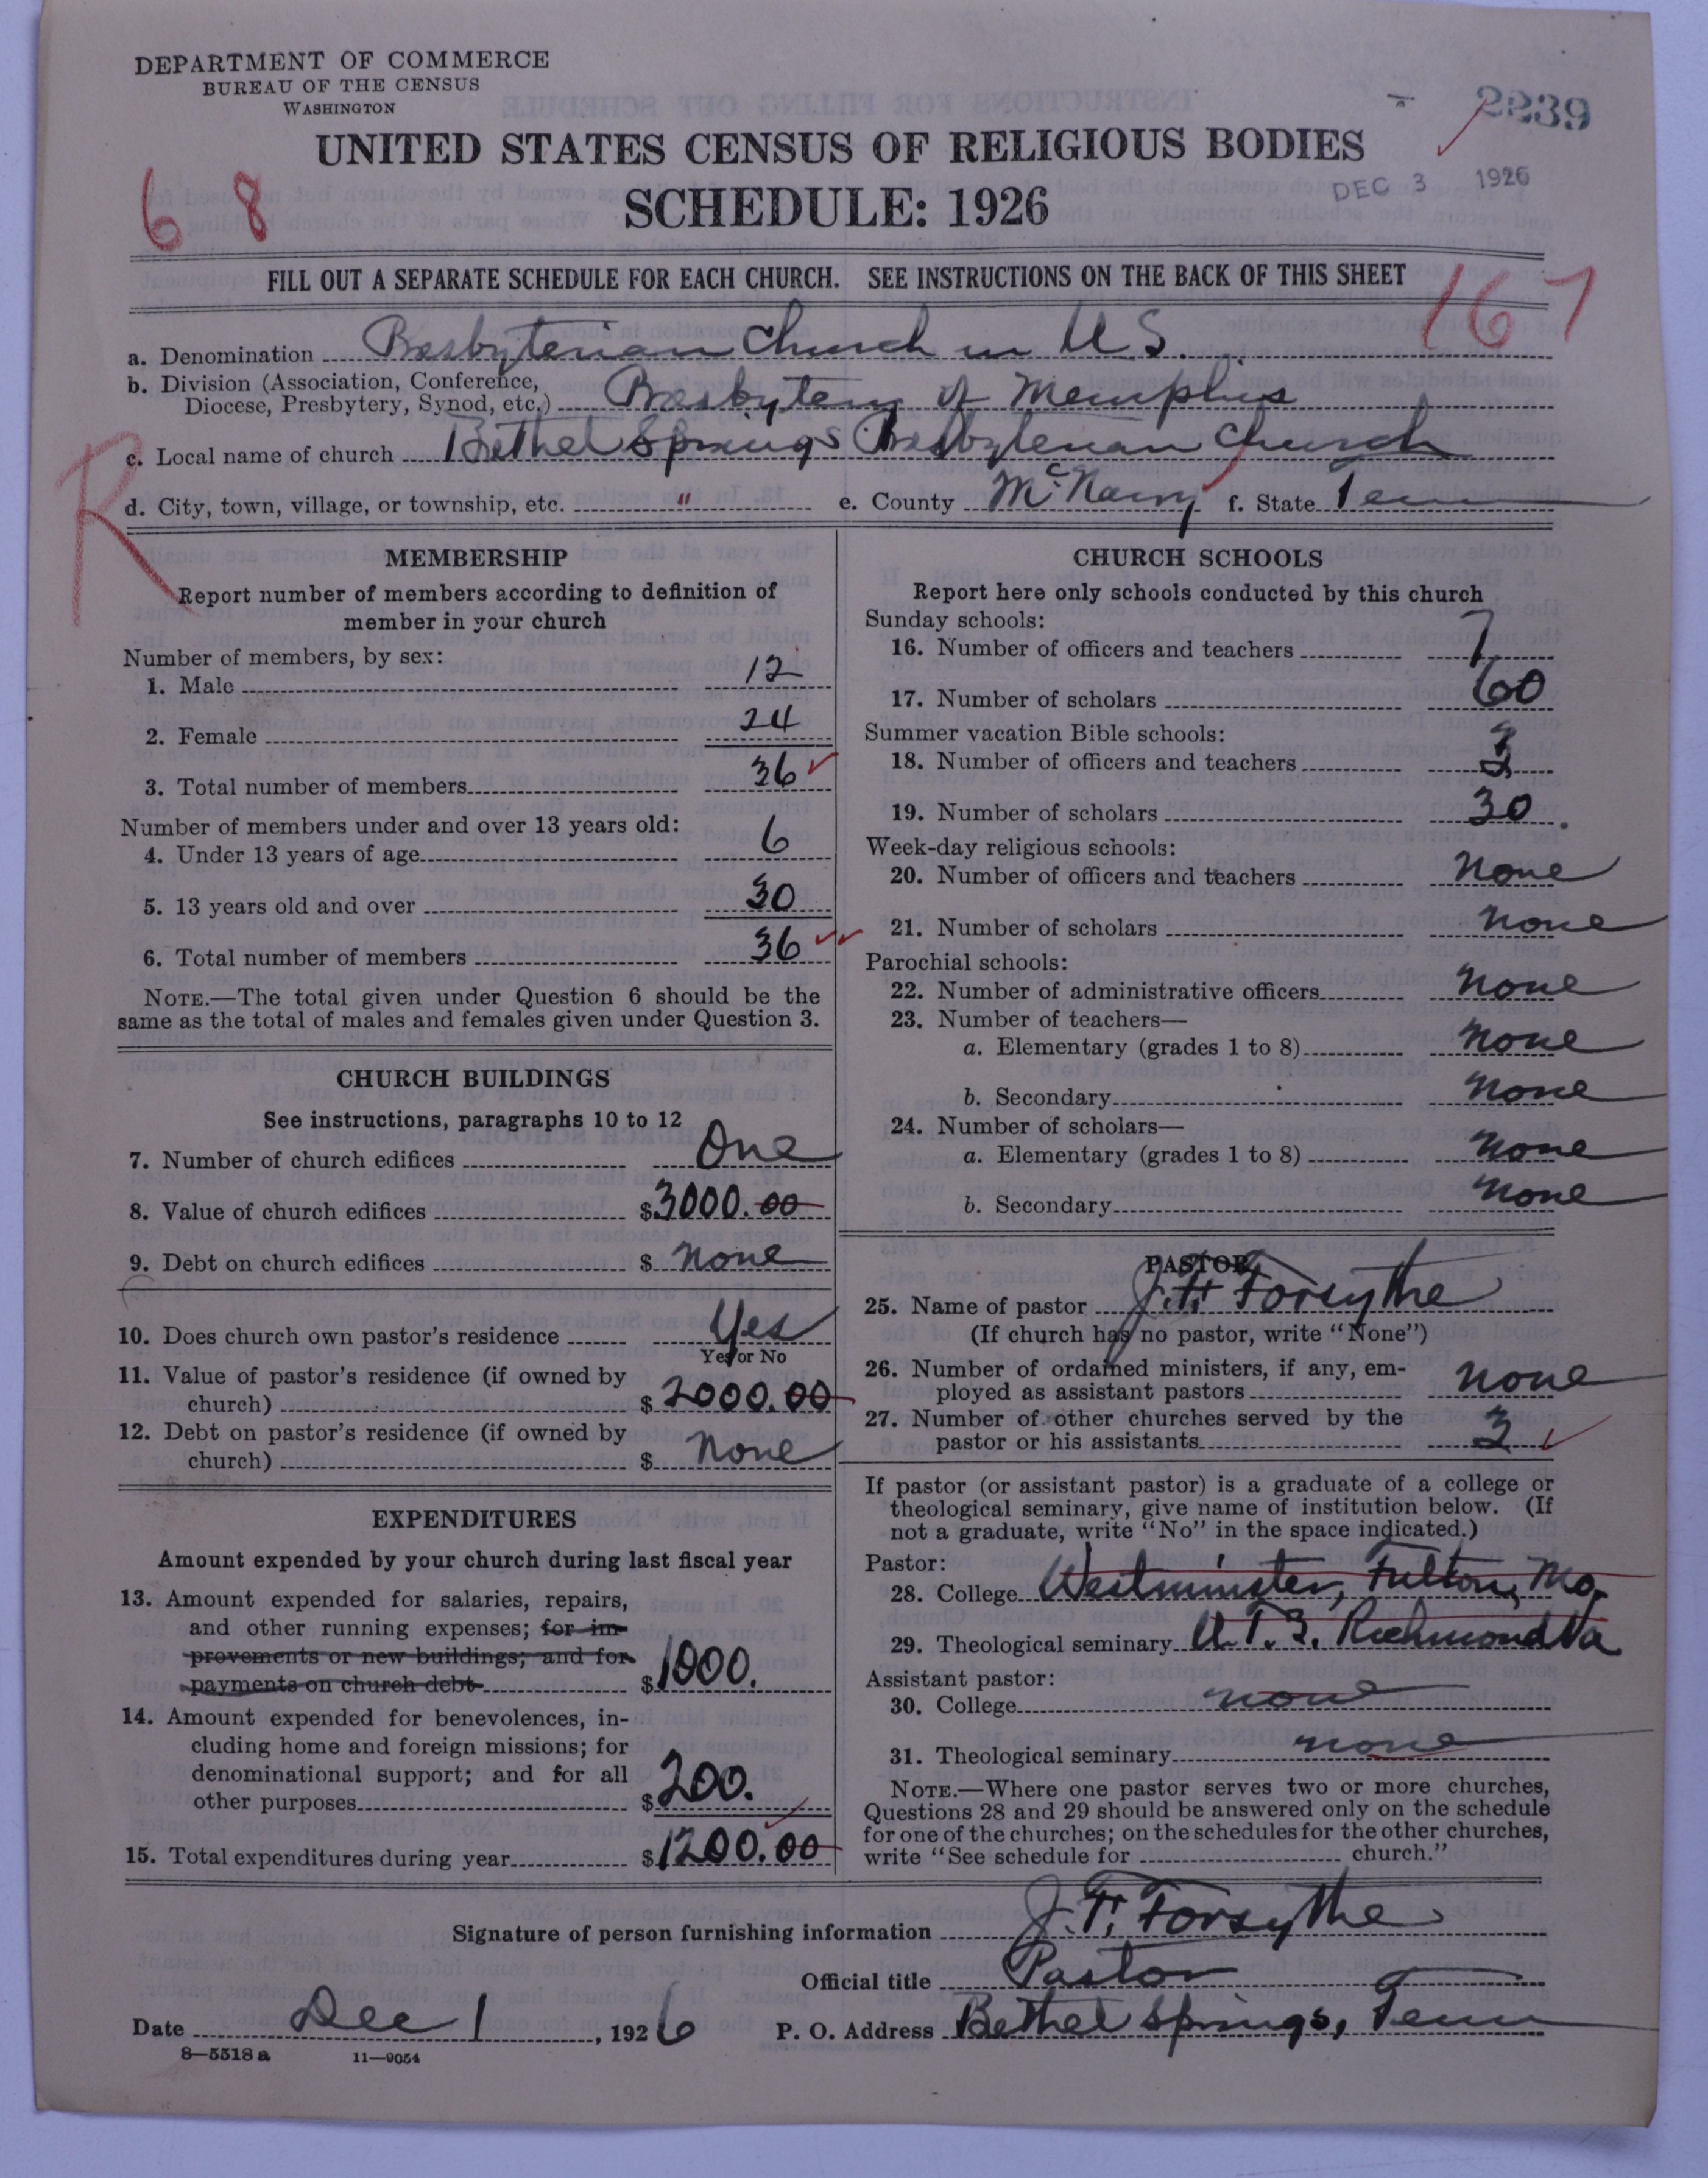 DEPARTMENT OF COMMERCE
BUREAU OF THE CENSUS
WASHINGTON
2239
UNITED STATES CENSUS OF RELIGIOUS BODIES
DEC 3 1926
68
SCHEDULE: 1926
FILL OUT A SEPARATE SCHEDULE FOR EACH CHURCH. SEE INSTRUCTIONS ON THE BACK OF THIS SHEET
167
a. Denomination Presbyterian Church in U S.
b. Division (Association, Conference,
Diocese, Presbytery, Synod, etc.) Presbytery of Memphis
c. Local name of church Bethel Springs Presbyterian Church
R
d. City, town, village, or township, etc. " e. County McNairy f. State Tenn
MEMBERSHIP
Report number of members according to definition of
member in your church
Number of members, by sex:
1. Male 12
2. Female 24
3. Total number of members 36
Number of members under and over 13 years old:
4. Under 13 years of age 6
5. 13 years old and over 30
6. Total number of members 36
NOTE.—The total given under Question 6 should be the
same as the total of males and females given under Question 3.
CHURCH BUILDINGS
See instructions, paragraphs 10 to 12
7. Number of church edifices One
8. Value of church edifices $3000.00
9. Debt on church edifices $ none
10. Does church own pastor's residence Yes
Yes or No
11. Value of pastor's residence (if owned by
church) $2000.00
12. Debt on pastor's residence (if owned by
church) $ none
EXPENDITURES
Amount expended by your church during last fiscal year
13. Amount expended for salaries, repairs,
and other running expenses; for im-
provements or new buildings; and for
payments on church debt $1000.
14. Amount expended for benevolences, in-
cluding home and foreign missions; for
denominational support; and for all
other purposes $200.
15. Total expenditures during year $1200.00
CHURCH SCHOOLS
Report here only schools conducted by this church
Sunday schools:
16. Number of officers and teachers 7
17. Number of scholars 60
Summer vacation Bible schools:
18. Number of officers and teachers 3
19. Number of scholars 30.
Week-day religious schools:
20. Number of officers and teachers none
21. Number of scholars none
Parochial schools:
22. Number of administrative officers none
23. Number of teachers—
a. Elementary (grades 1 to 8) none
b. Secondary none
24. Number of scholars—
a. Elementary (grades 1 to 8) none
b. Secondary none
PASTOR
25. Name of pastor J. F. Forsythe
(If church has no pastor, write "None")
26. Number of ordained ministers, if any, em-
ployed as assistant pastors none
27. Number of other churches served by the
pastor or his assistants 3
If pastor (or assistant pastor) is a graduate of a college or
theological seminary, give name of institution below. (If
not a graduate, write "No" in the space indicated.)
Pastor:
28. College Westminster, Fulton, Mo.
29. Theological seminary U.T.S. Richmond Va
Assistant pastor:
30. College none
31. Theological seminary none
NOTE.—Where one pastor serves two or more churches,
Questions 28 and 29 should be answered only on the schedule
for one of the churches; on the schedules for the other churches,
write "See schedule for church."
Signature of person furnishing information J. F. Forsythe
Official title Pastor
Date Dec 1, 1926 P. O. Address Bethel Springs, Tenn
8—5518 a 11—9054